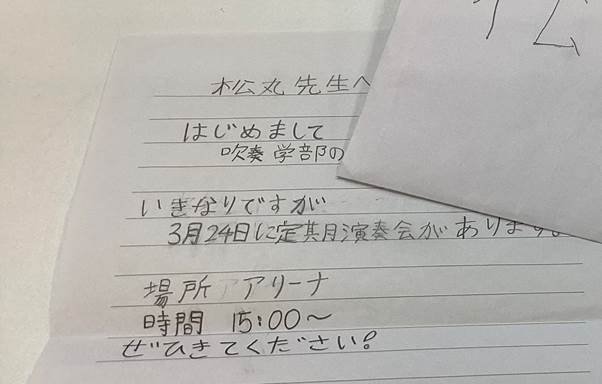 松丸先生へ
はじめまして
吹奏学部の
いきなりですが
3月24日に定期演奏会があります。
場所 アリーナ
時間 15:00〜
ぜひきてください!